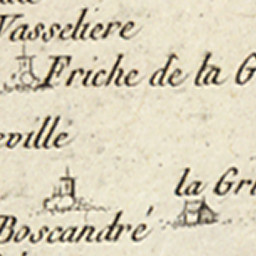 Vasseliere
Friche de la G
eville
la Gri
Boscandré